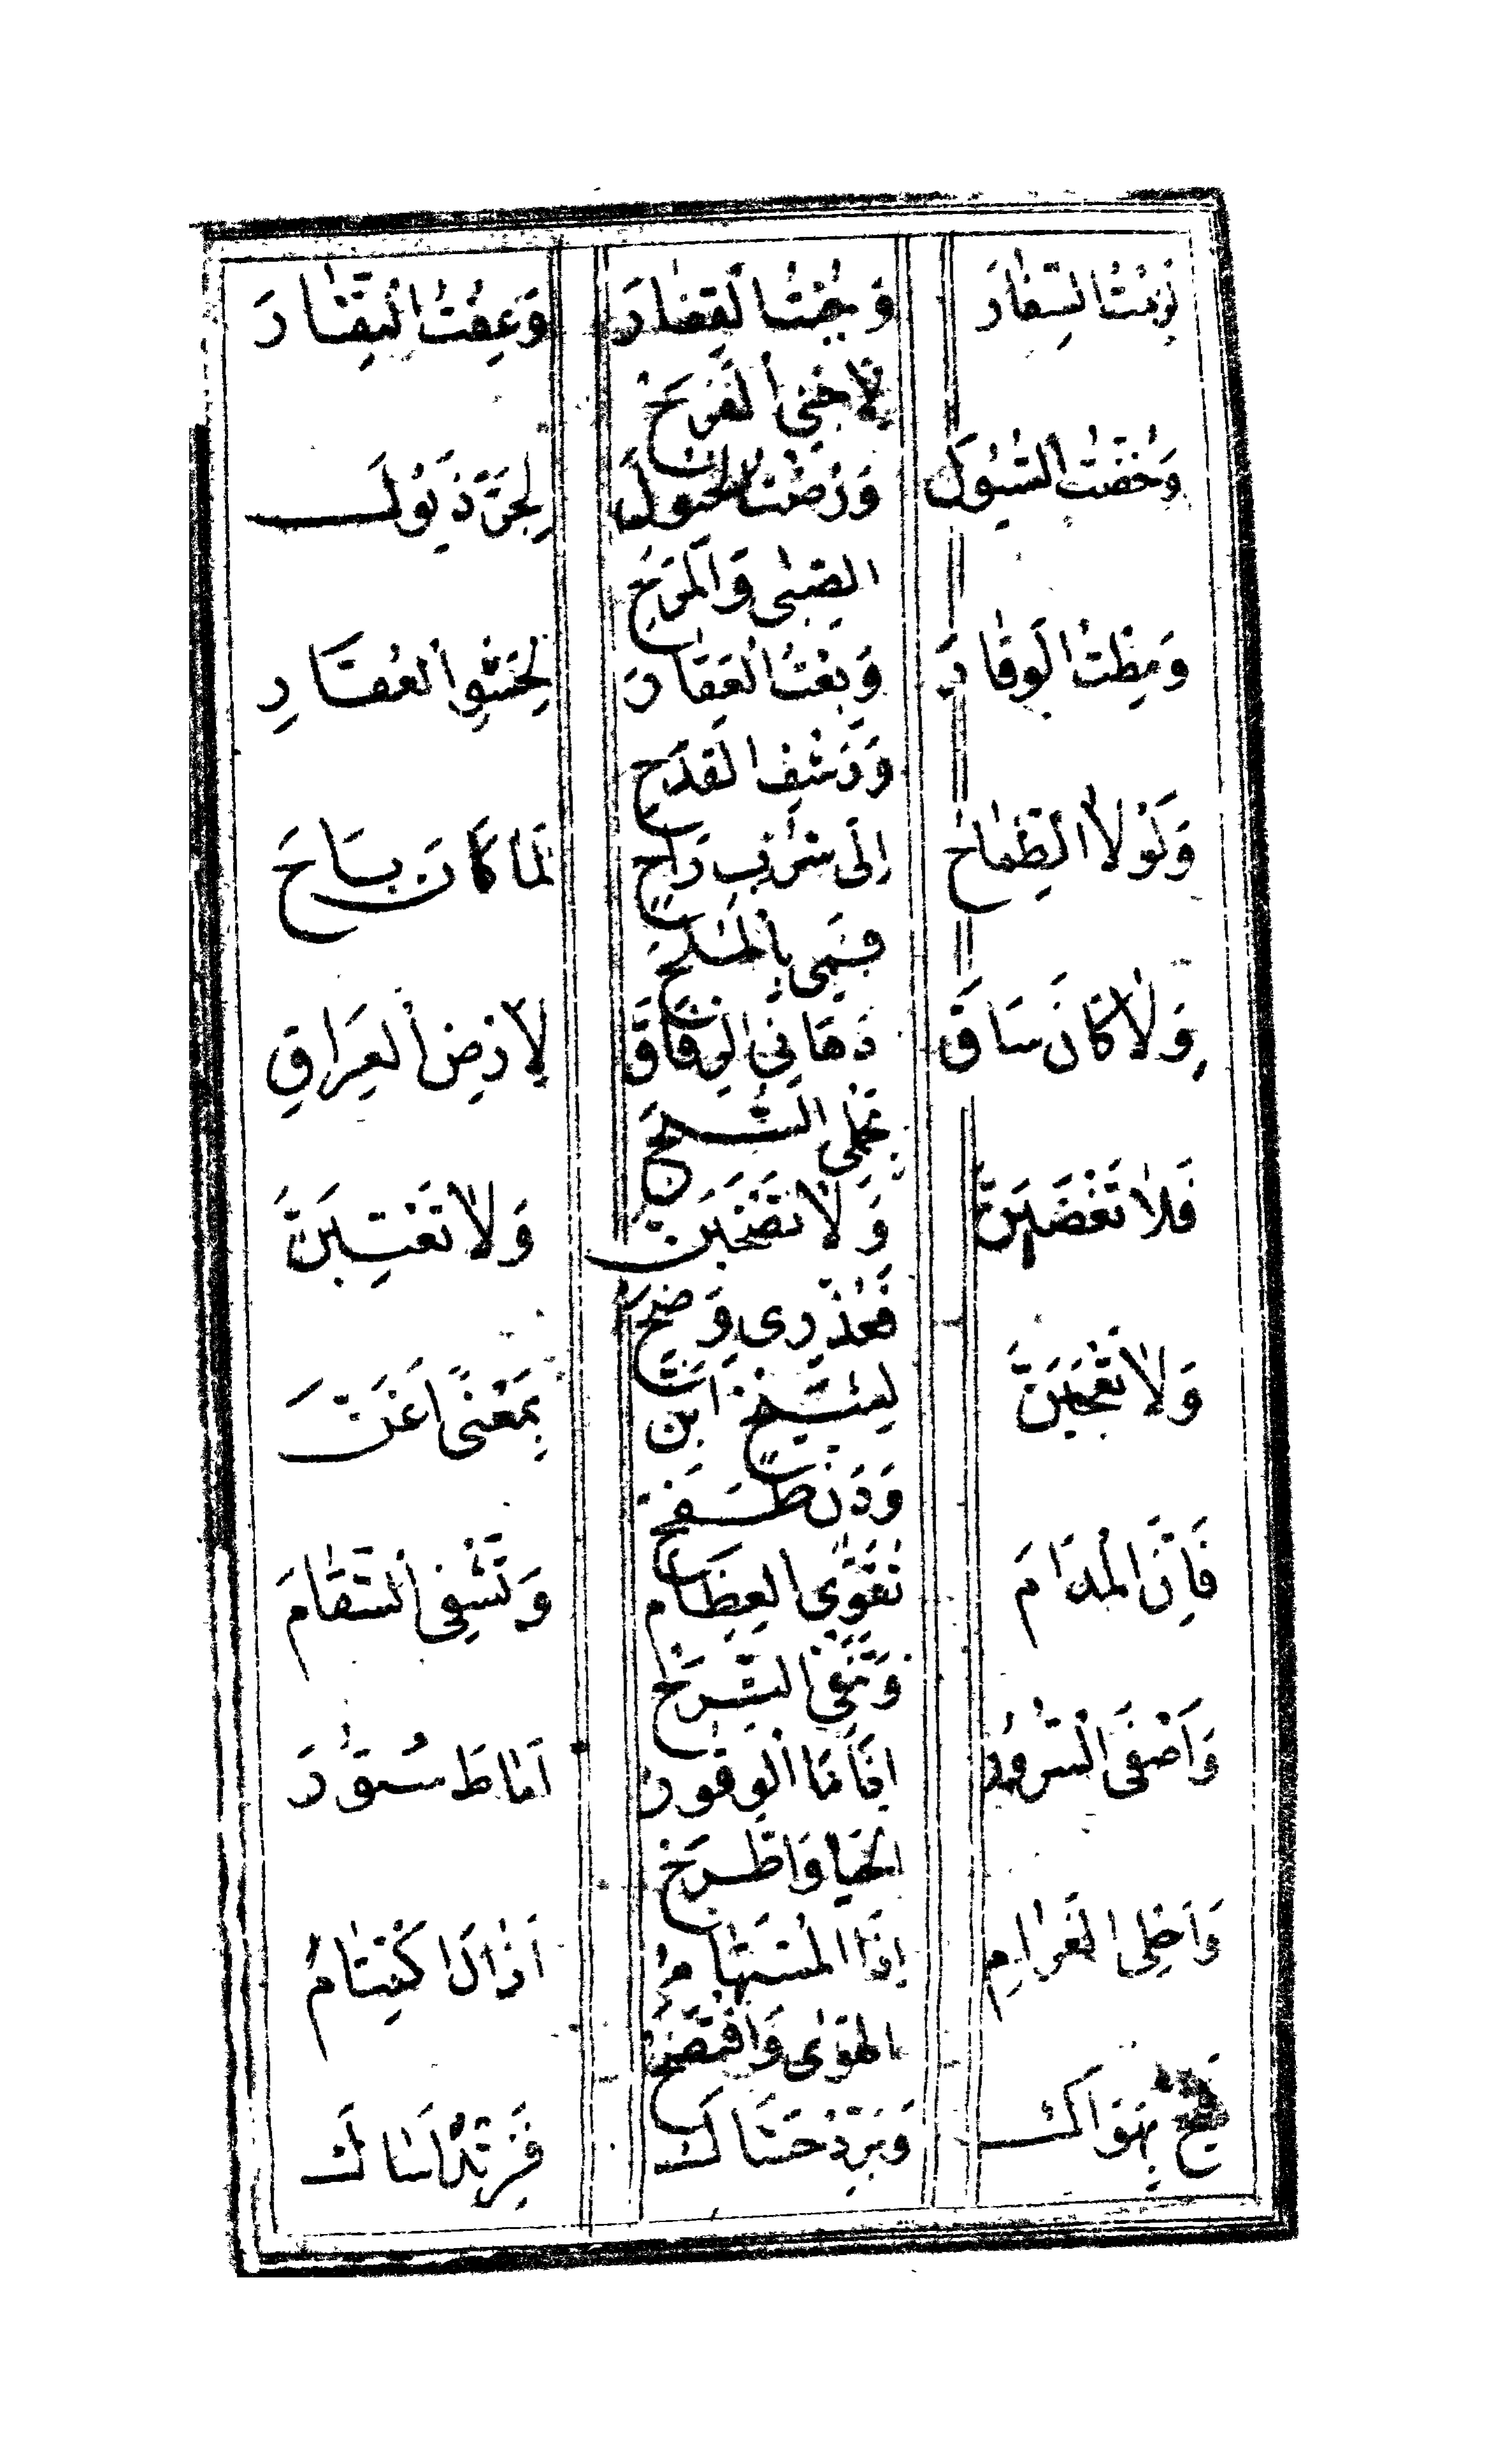 لَزِمْتُ السِّفَارَ وَجُبْتُ الْقِفَارَ وَعِفْتُ النِّفَارَ
لِأَجْنِي الْفَرَحْ
وَخُضْتُ السُّيُولَ وَرُضْتُ الْخُيُولَ لِجَرِّ ذُيُولِ
الصِّبٰى وَالْمَرَحْ
وَمِطْتُ الْوَقَارَ وَبِعْتُ الْعَقَارَ لِحَسْوِ الْعُقَارِ
وَرَشْفِ الْقَدَحْ
وَلَوْلَا الطِّمَاحُ إِلَى شُرْبِ رَاحٍ لَمَا كَانَ بَاحَ
فَمِي بِالْمُلَحْ
وَلَا كَانَ سَاقَ دَهَائِي الرِّفَاقَ لِأَرْضِ الْعِرَاقِ
بِحَمْلِ السُّبَحْ
فَلَا تَغْضَبَنَّ وَلَا تَصْخَبَنَّ وَلَا تَعْتِبَنَّ
فَعُذْرِي وَضَحْ
وَلَا تَعْجَبَنَّ لِشَيْخٍ أَبَنَّ بِمَغْنًى أَغَنَّ
وَدَنٍّ طَفَحْ
فَإِنَّ الْمُدَامَ تُقَوِّي الْعِظَامَ وَتَشْفِي السَّقَامَ
وَتَنْفِي التَّرَحْ
وَأَصْفَى السُّرُورِ إِذَا مَا الْوَقُورُ أَمَاطَ سُتُورَ
الْحَيَا وَاطَّرَحْ
وَأَحْلَى الْغَرَامِ إِذَا الْمُسْتَهَامُ أَزَالَ اكْتِتَامَ
الْهَوٰى وَافْتَضَحْ
فَبُحْ بِهَوَاكَ وَبَرِّدْ حَشَاكَ فَزَنْدُ أَسَاكَ